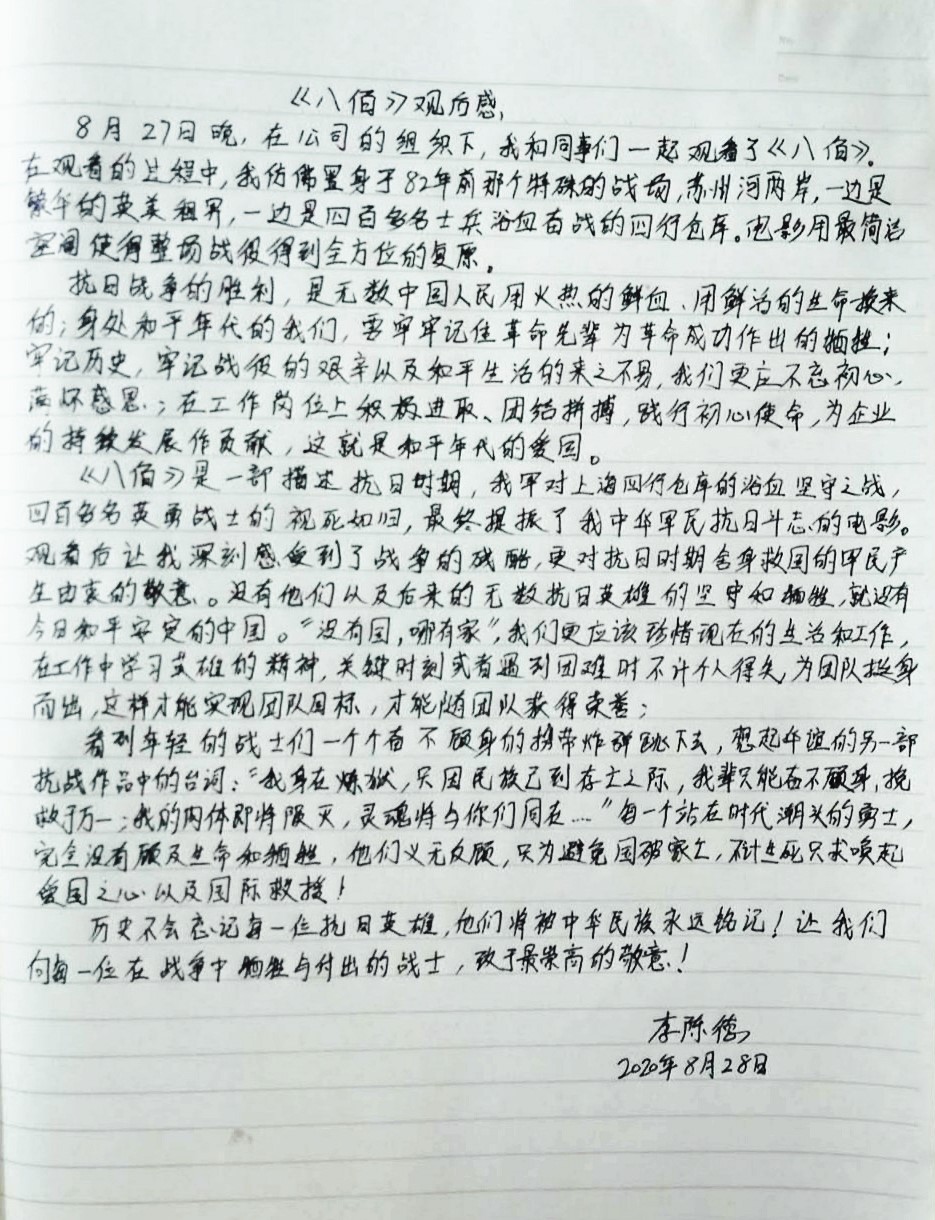 《八佰》观后感
8月27日晚，在公司的组织下，我和同事们一起观看了《八佰》。
在观看的过程中，我仿佛置身于82年前那个特殊的战场，苏州河两岸，一边是
繁华的英美租界，一边是四百多名士兵浴血奋战的四行仓库。电影用最简洁
空间使得整场战役得到全方位的复原。
抗日战争的胜利，是无数中国人民用火热的鲜血、用鲜活的生命换来
的；身处和平年代的我们，需牢牢记住革命先辈为革命成功作出的牺牲；
牢记历史，牢记战役的艰辛以及和平生活的来之不易，我们更应不忘初心，
满怀感恩；在工作岗位上积极进取、团结拼搏，践行初心使命，为企业
的持续发展作贡献，这就是和平年代的爱国。
《八佰》是一部描述抗日时期，我军对上海四行仓库的浴血坚守之战，
四百多名英勇战士的视死如归，最终提振了我中华军民抗日斗志的电影。
观看后让我深刻感受到了战争的残酷，更对抗日时期舍身救国的军民产
生由衷的敬意。没有他们以及后来的无数抗日英雄的坚守和牺牲，就没有
今日和平安定的中国。“没有国，哪有家”，我们更应该珍惜现在的生活和工作，
在工作中学习英雄的精神，关键时刻或者遇到困难时不计个人得失，为团队挺身
而出，这样才能实现团队目标，才能随团队获得荣誉；
看到年轻的战士们一个个奋不顾身的携带炸弹跳下去，想起年谊的另一部
抗战作品中的台词：“我身在炼狱，只因民族已到存亡之际，我辈只能奋不顾身，挽
救于万一；我的肉体即将陨灭，灵魂将与你们同在....”每一个站在时代潮头的勇士，
完全没有顾及生命和牺牲，他们义无反顾，只为避免国破家亡，不计生死只求唤起
爱国之心以及国际救援！
历史不会忘记每一位抗日英雄，他们将被中华民族永远铭记！让我们
向每一位在战争中牺牲与付出的战士，致于最崇高的敬意！
李陈德
2020年8月28日